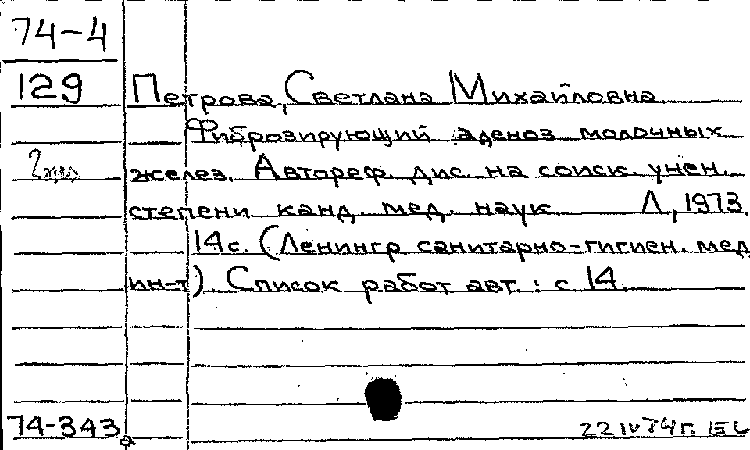 74-4
129
Петрова, Светлана Михайловна
Фиброзирующий аденоз молочных
желез. Автореф. дис. на соиск. учен.
степени канд. мед. наук Л., 1973.
14 с. (Ленингр. санитарно-гигиен. мед.
ин-т). Список работ авт.: с 14
74-343
22 IV 74 г.